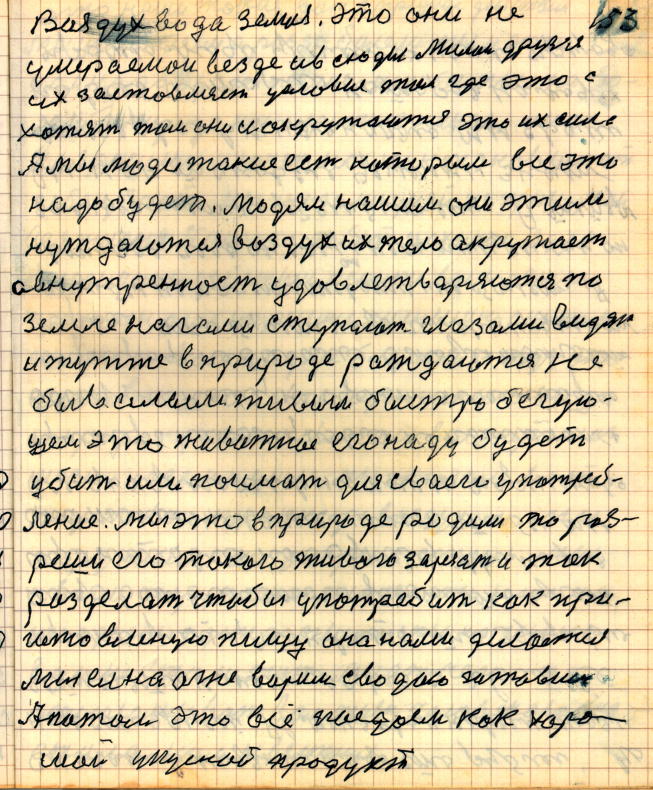 Воздух вода земля. Это они не 153
умераемои везде ив сюды милаи друзе
их заставляет условие там где это с
хотят там они и акружаются это их сила
А мы люди такие ест которым все это
надо будет. Людям нашим они этим
нуждаются воздух их тело акружает
авнутренност удовлетваряются по
земле нагами ступают глазами видят
и тутже в природе раждаются не
был силам живым быстро бегую-
щем это животное его наду будет
убит или поимат для сваего употреб-
ление. мы это в природе родили то раз-
реши его такого живого зарезат и так
разделат чтобы употребит как при-
готовленую пищу она нами делается
мы ей на огне варим сводою готовим
А потом это всё поедаем как харо-
шой укусной продукт